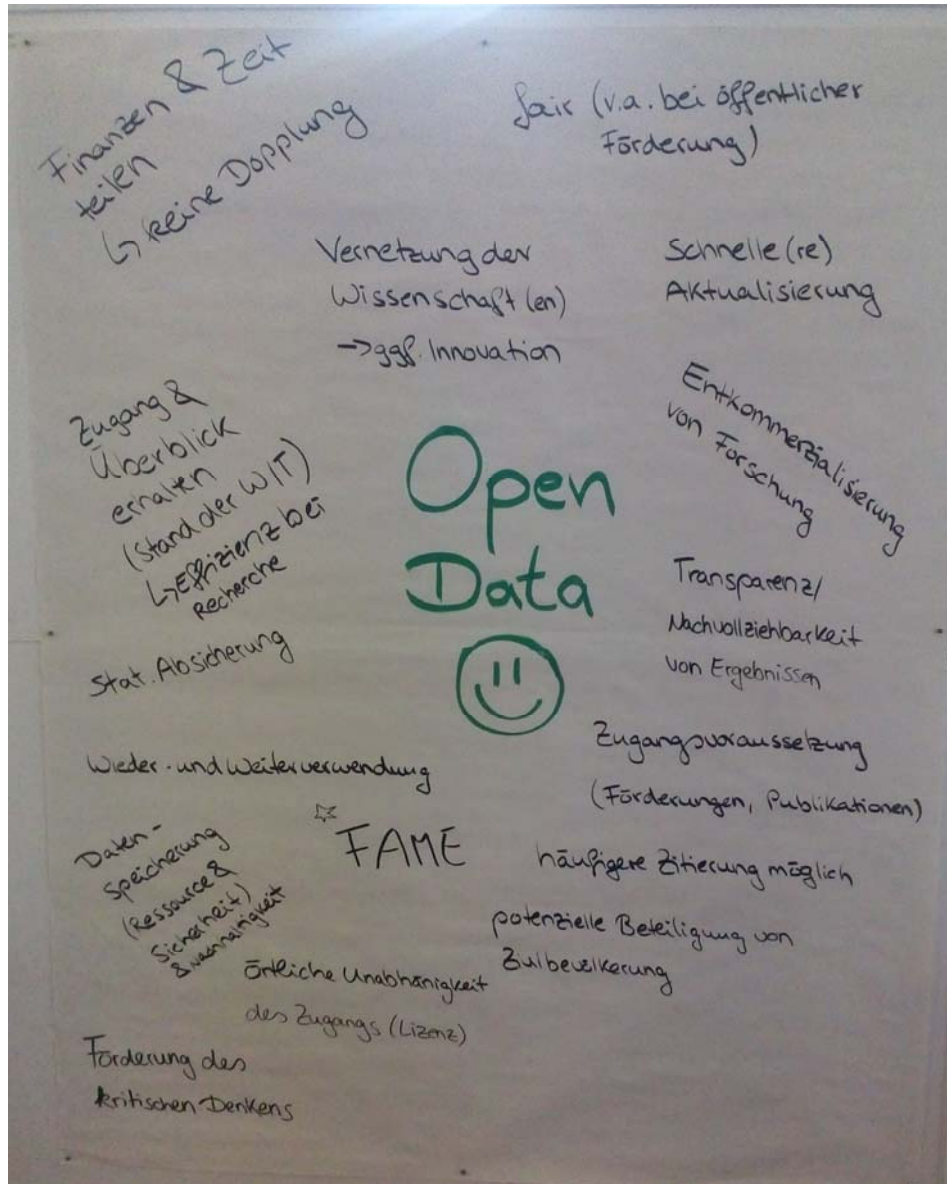 Finanzen & Zeit
teilen
↳ keine Dopplung
fair (v.a. bei öffentlicher
Förderung)
Vernetzung der
Wissenschaft (en)
-> ggf. Innovation
Schnelle(re)
Aktualisierung
Zugang &
Überblick
erhalten
(Stand der WIT)
↳ Effizienz bei
Recherche
Open
Data
Entkommerzialisierung
von Forschung
Transparenz/
Nachvollziehbarkeit
von Ergebnissen
Stat. Absicherung
Zugangsvoraussetzung
(Förderungen, Publikationen)
Wieder- und Weiterverwendung
FAME
häufigere Zitierung möglich
Daten-
speicherung
(Ressource &
Sicherheit)
& Nachhaltigkeit
potenzielle Beteiligung von
Zivilbevölkerung
örtliche Unabhänigkeit
des Zugangs (Lizenz)
Förderung des
kritischen Denkens